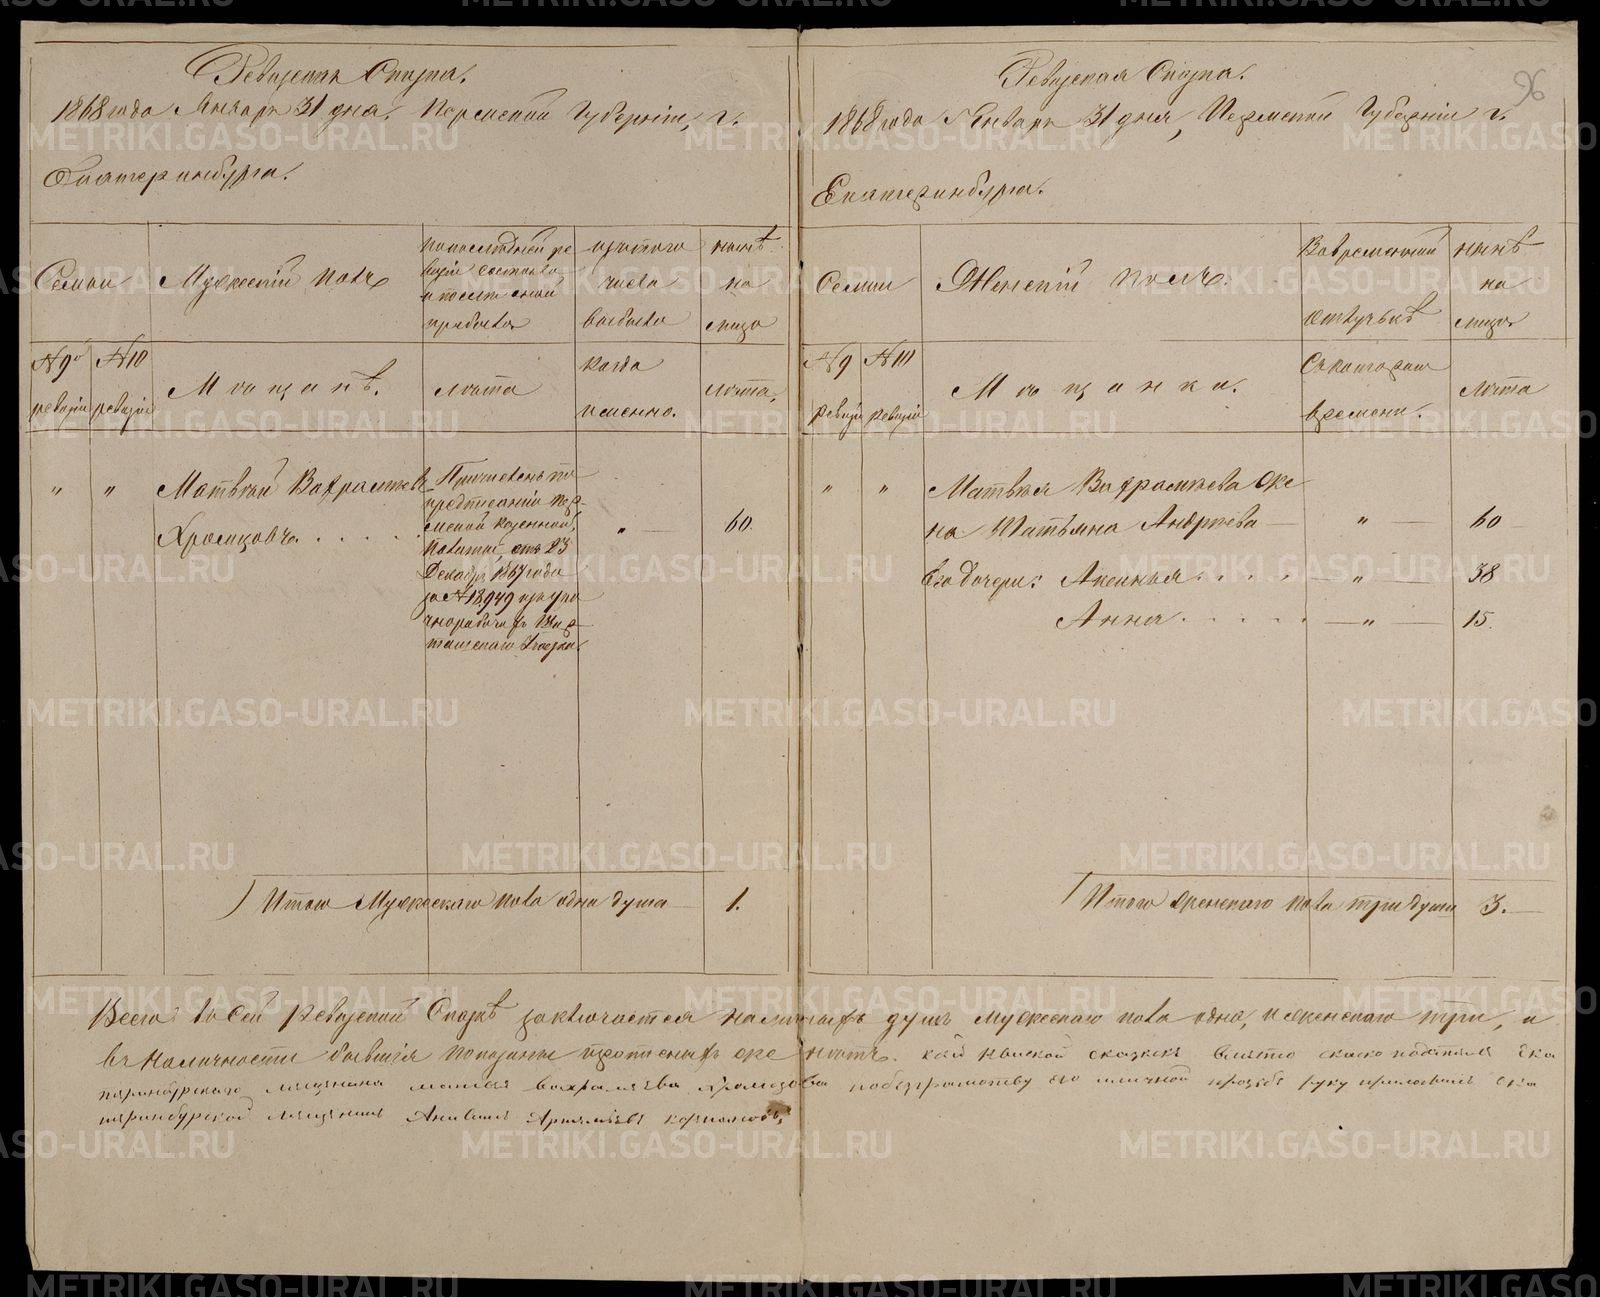 Ревизская Сказка.
1868 года Января 31 дня, Пермской Губерніи, г.
Екатеринбурга.
Семьи
Мужескій полъ
по последней ре
визіи состояло
и после оной
прибыло
изътого
числа
выбыло
нынѣ
на
лицо
№ 9й
ревизіи
№ 10
ревизіи
Мѣщанѣ.
лѣта
когда
именно.
лѣта.
" "
Матвей Вахрамѣевъ
Хромцовъ . . . .
Причисленъ по
предписанію Пер-
мской Казенной
Палаты, отъ 23
Декабр. 1867 года
за № 18,949 изъ уро
чнорабочихъ
завода.
"
60.
Итого Мужескаго пола одна душа
1.
96
Ревизская Сказка.
1868 года Января 31 дня, Пермской Губерніи г.
Екатеринбурга.
Семьи
Женскій полъ.
Вовременной
отлучькѣ
нынѣ
на
лицо
№ 9
ревизіи
№ 10
ревизіи
Мѣщанки.
Съкотораго
времени.
лѣта
" "
Матвея Вахрамѣева Же
на Татьяна Андреева
"
60
Его дочери: Аксинья . . . .
"
38
Анна . . . . .
"
15.
Итого женскаго пола три души
3.
Всего въ сей ревизской Сказкѣ заключается наличныхъ душъ мужескаго пола одна, и женскаго три, и
въ наличности бывшія показаны прописныхъ же нѣтъ. Ека
теринбурского мещанина матвея вахрамѣева Хромцова побезграмотству его иличной прозьбе руку приложилъ ека
теринбурской мещанинъ